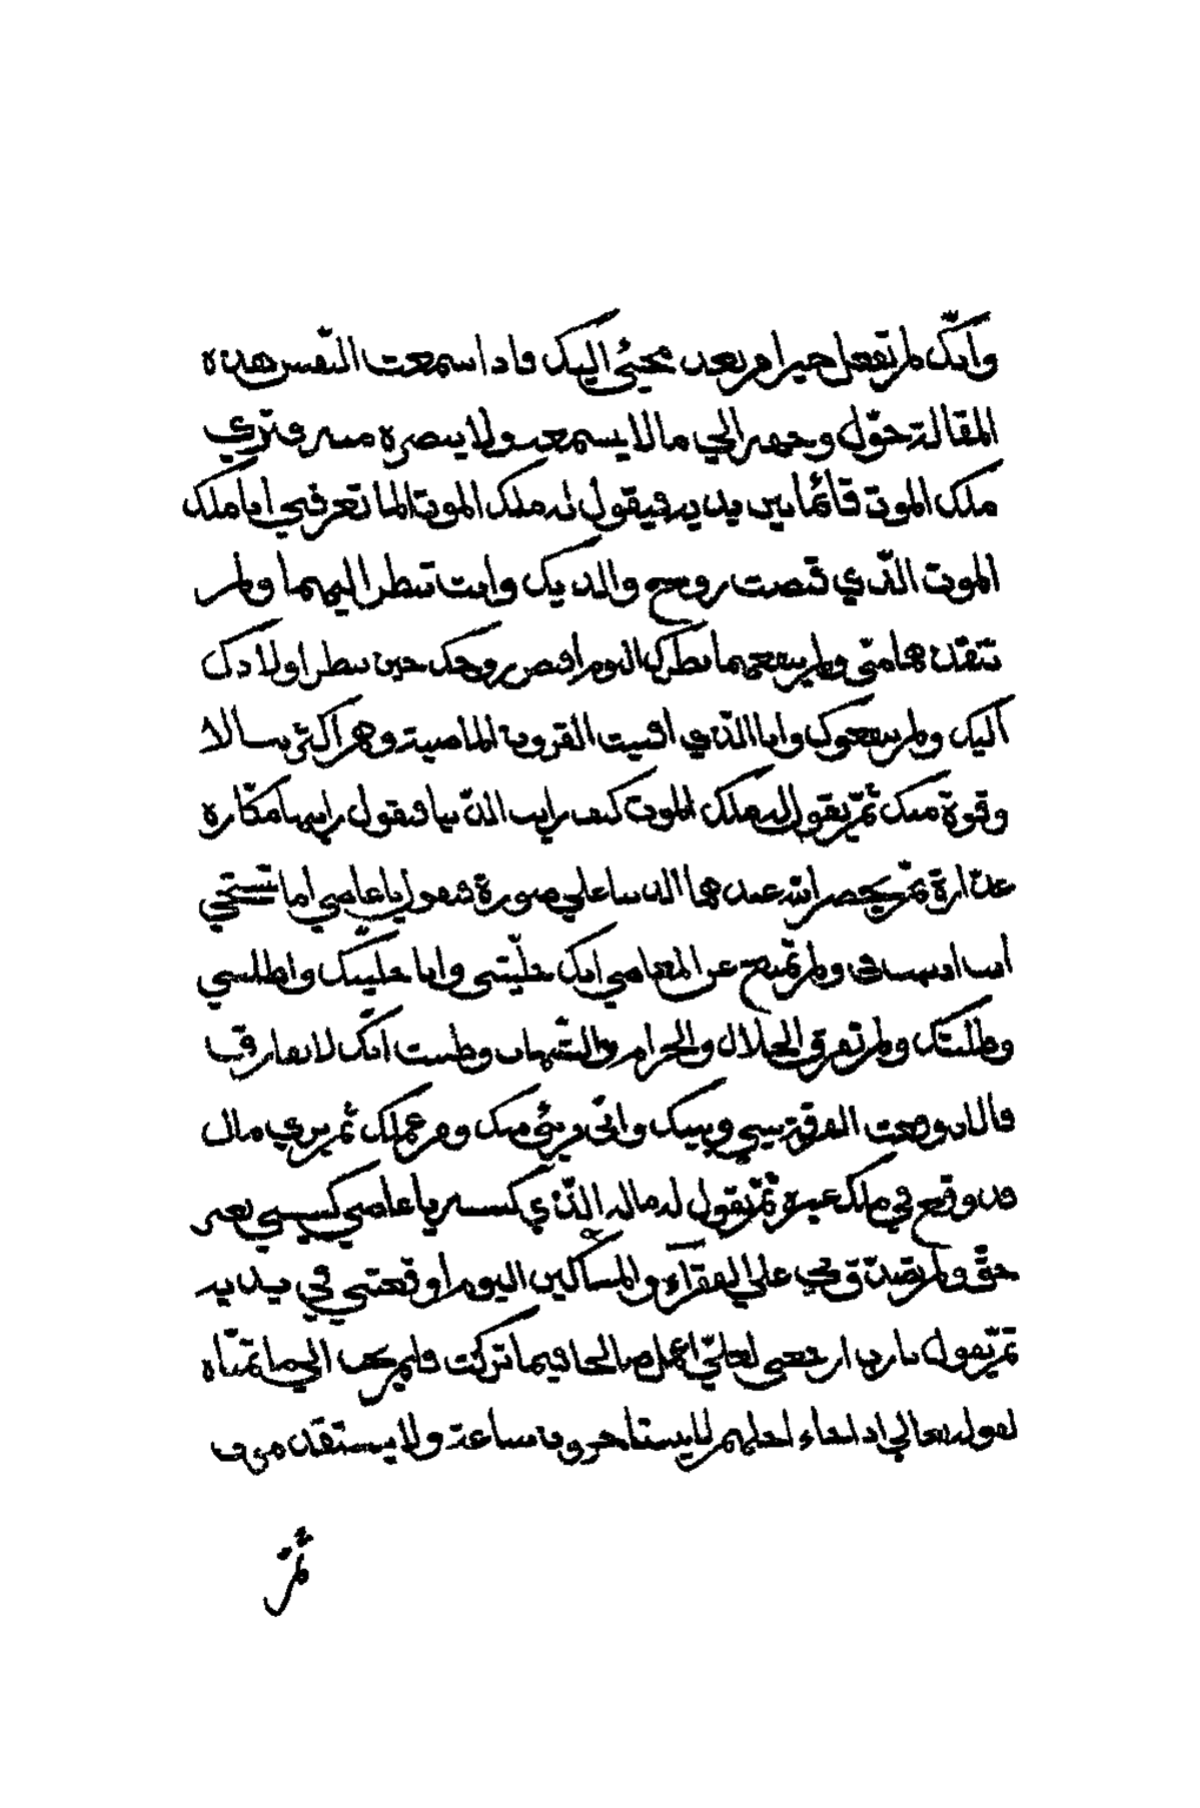 وانّك لم تفعل خيرا من بعد مجيئي اليك فاذا سمعت النّفس هذه
المقالة حوّل وجهه الي ما لا يسمعه ولا يبصره منه فتري
ملك الموت قائما بين يديه فيقول له ملك الموت الما تعرفني انا ملك
الموت الّذي قبضت روح والديك وانت تنظر اليهما ولم
تنقذهما منّي ولم ينفعهما نظرك اليوم اقبض روحك حين ينظر اولادك
اليك ولم ينفعوك وانا الّذي افنيت القرون الماضية وهم اكثر مالا
وقوة منك ثمّ يقول له ملك الموت كيف رايت الدّنيا فيقول رايتها مكّارة
غدّارة ثمّ يحضر الله عندهما الدنيا علي صورة فتقول يا عاصي اما تستحي
ولم تمتنع عن المعاصي انك طلّبتني وانا طلبتك
وطلبتك ولم تفرق الحلال والحرام والشّبهات وظننت انّك لا تفارقني
فالان وقعت الفرقة بيني وبينك وانّي بريئ منك ومن عملك ثم يري مال
قد وقع في ملك غيره ثمّ يقول له ماله الّذي كسبه يا عاصي كسبتني بغير
حقّ ولم تصدّق بي علي الفقرآء والمساكين اليوم اوقعتني في يد
ثمّ يقول يا رب ارجعني لعلّي اعمل صالحا فيما تركت فلم يرجع الي ما تمنّاه
لقوله تعالي اذا جاء اجلهم لا يستاخرون ساعة ولا يستقدمون
ثمّ